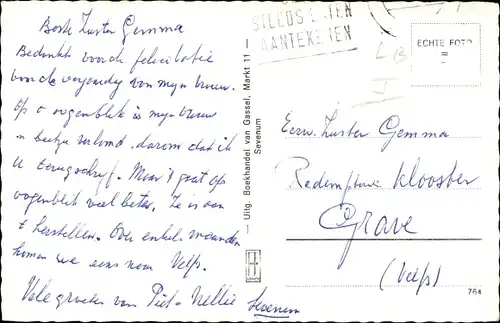 Beste Zuster Gemma
Bedankt voor de felicitatie
voor de verjaardag van mijn vrouw.
Op 't oogenblik is mijn vrouw
n beetje verlamd, daarom dat ik
U terugschrijf. Maar 't gaat op
oogenblik veel beter. Ze is aan
't herstellen. Over enkele maanden
komen we eens naar Velp.
Vele groeten van Piet + Nellie Sevenum
AANTEKENEN
ECHTE FOTO
— Uitg. Boekhandel van Gassel, Markt 11 —
Sevenum
Eerw. Zuster Gemma
Redemptorie Klooster
Grave
(Velp)
764